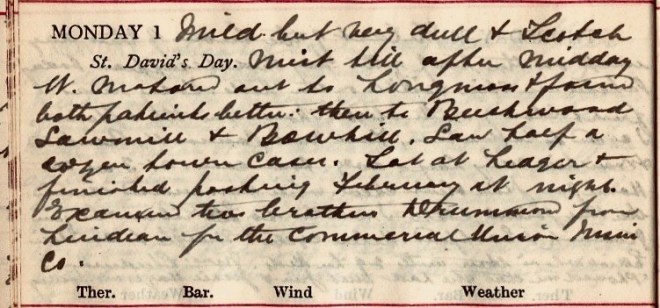 MONDAY 1 Mild but very dull & Scotch
St. David's Day. Mist till after midday
W. out to Longmoss & found
both patients better: then to
Sawmill & Bowhill. Saw half a
dozen town cases. Sat at Ledger &
finished posting February at night.
Examined two brothers Drummond from
Lindean for the Commercial Union
Co.
Ther. Bar. Wind Weather